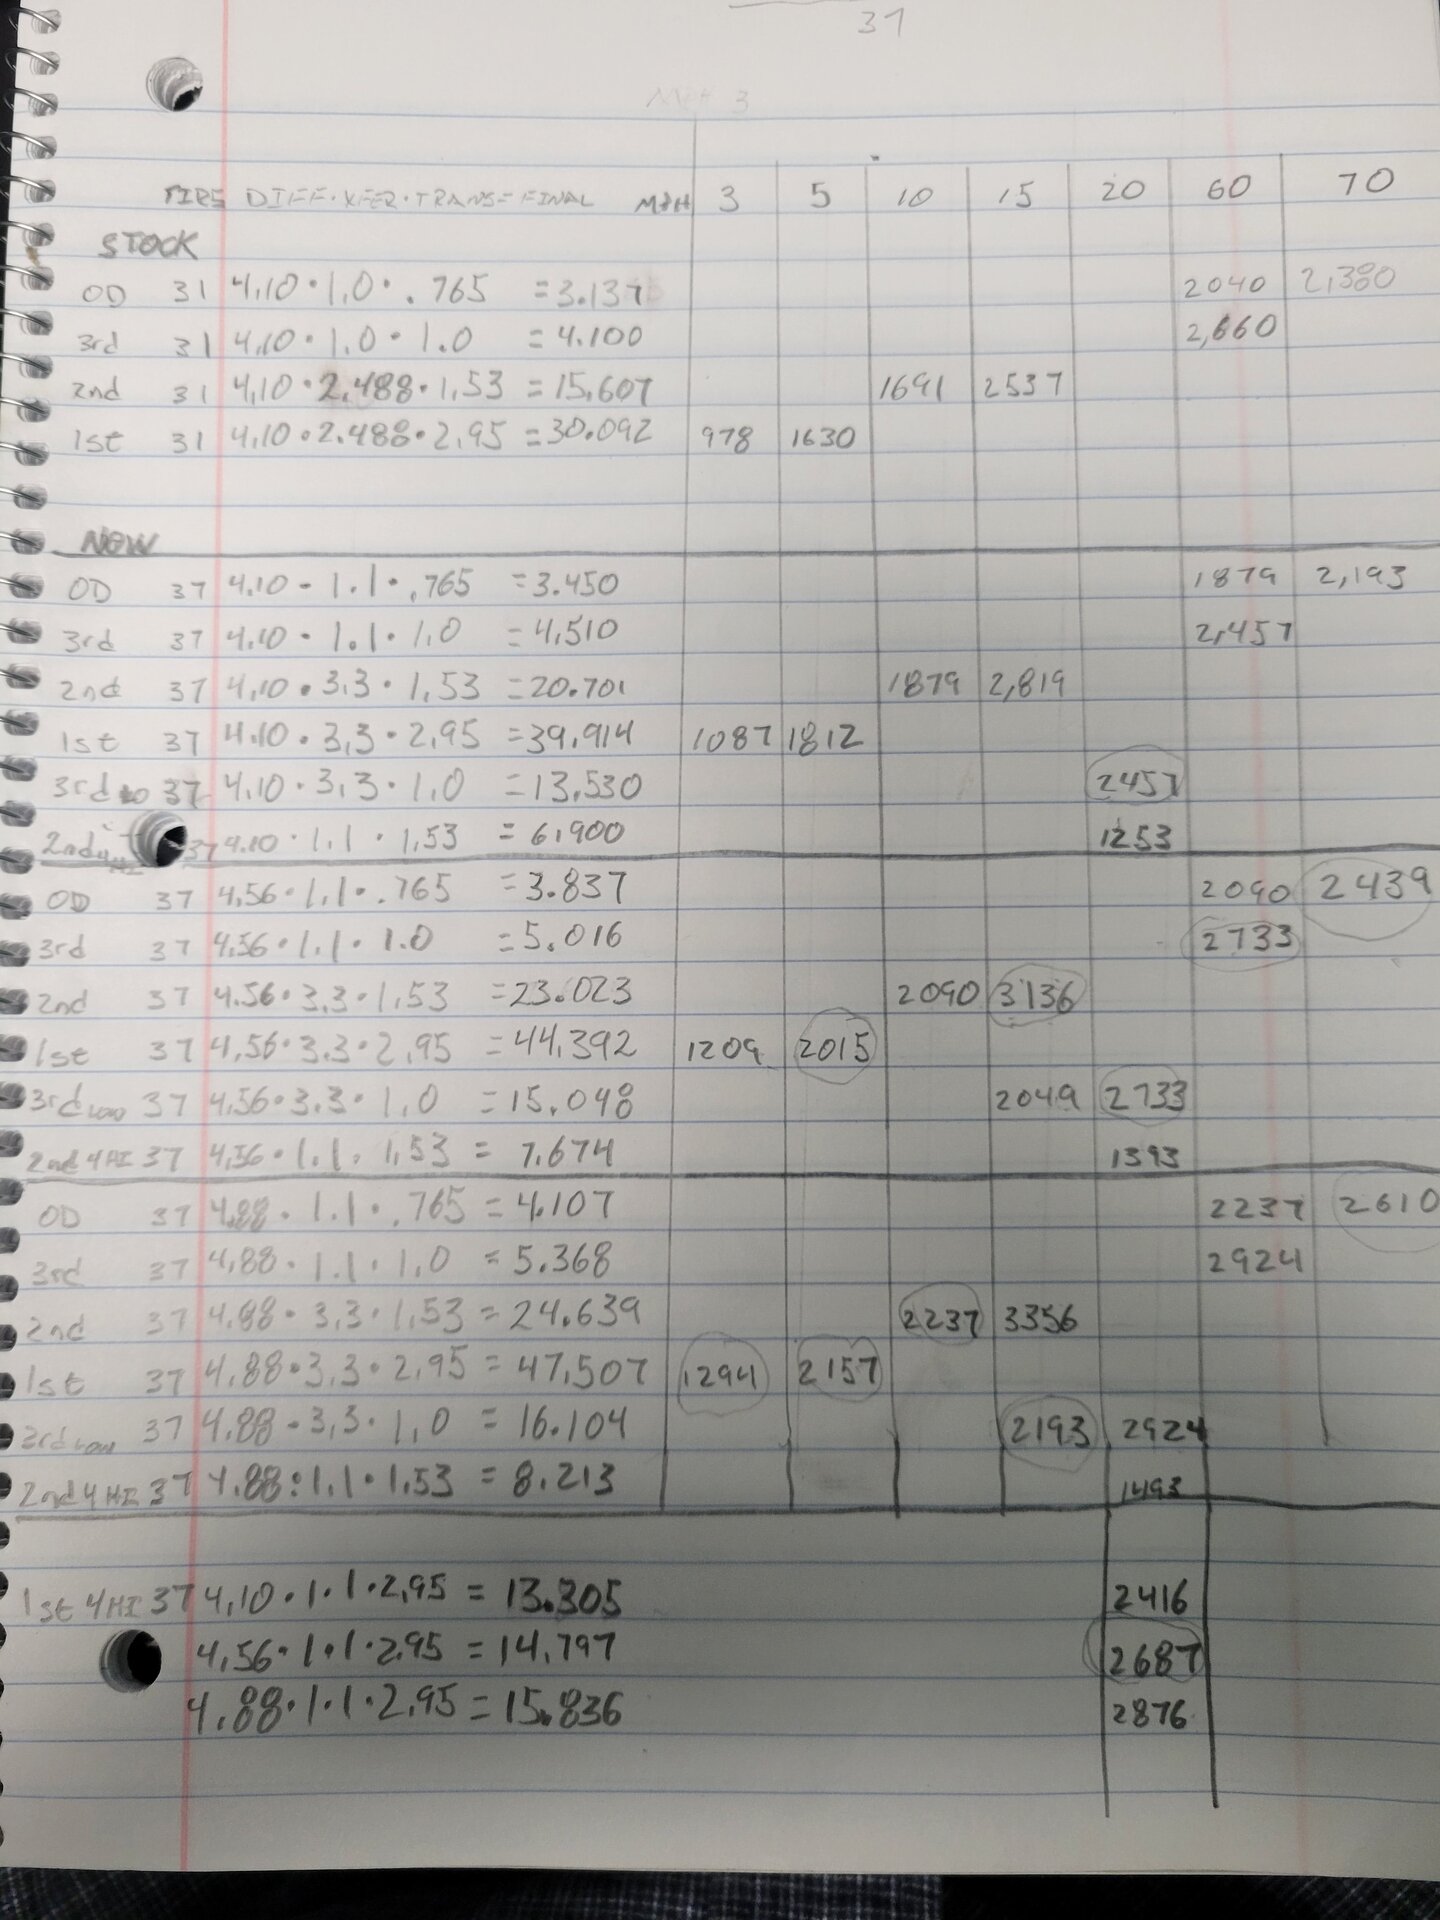 31
MPH 3
TIRE DIFF · XFER · TRANS = FINAL MPH 3 5 10 15 20 60 70
STOCK
OD 31 4.10 · 1.0 · .765 = 3.137 2040 2,380
3rd 31 4.10 · 1.0 · 1.0 = 4.100 2,660
2nd 31 4.10 · 2.488 · 1.53 = 15.607 1691 2537
1st 31 4.10 · 2.488 · 2.95 = 30.092 978 1630
NEW
OD 37 4.10 - 1.1 · .765 = 3.450 1879 2,193
3rd 37 4.10 · 1.1 · 1.0 = 4.510 2,457
2nd 37 4.10 · 3.3 · 1.53 = 20.701 1879 2,819
1st 37 4.10 · 3.3 · 2.95 = 39.914 1087 1812
3rd LO 37 4.10 · 3.3 · 1.0 = 13.530 2457
2nd 4HI 37 4.10 · 1.1 · 1.53 = 6.900 1253
OD 37 4.56 · 1.1 · .765 = 3.837 2090 2439
3rd 37 4.56 · 1.1 · 1.0 = 5.016 2733
2nd 37 4.56 · 3.3 · 1.53 = 23.023 2090 3136
1st 37 4.56 · 3.3 · 2.95 = 44.392 1209 2015
3rd LOW 37 4.56 · 3.3 · 1.0 = 15.048 2049 2733
2nd 4HI 37 4.56 · 1.1 · 1.53 = 7.674 1393
OD 37 4.88 · 1.1 · .765 = 4.107 2237 2610
3rd 37 4.88 · 1.1 · 1.0 = 5.368 2924
2nd 37 4.88 · 3.3 · 1.53 = 24.639 2237 3356
1st 37 4.88 · 3.3 · 2.95 = 47.507 1294 2157
3rd LOW 37 4.88 - 3.3 · 1.0 = 16.104 2193 2924
2nd 4HI 37 4.88 · 1.1 · 1.53 = 8.213 1493
1st 4HI 37 4.10 · 1.1 · 2.95 = 13.305 2416
4.56 · 1.1 · 2.95 = 14.797 2687
4.88 · 1.1 · 2.95 = 15.836 2876